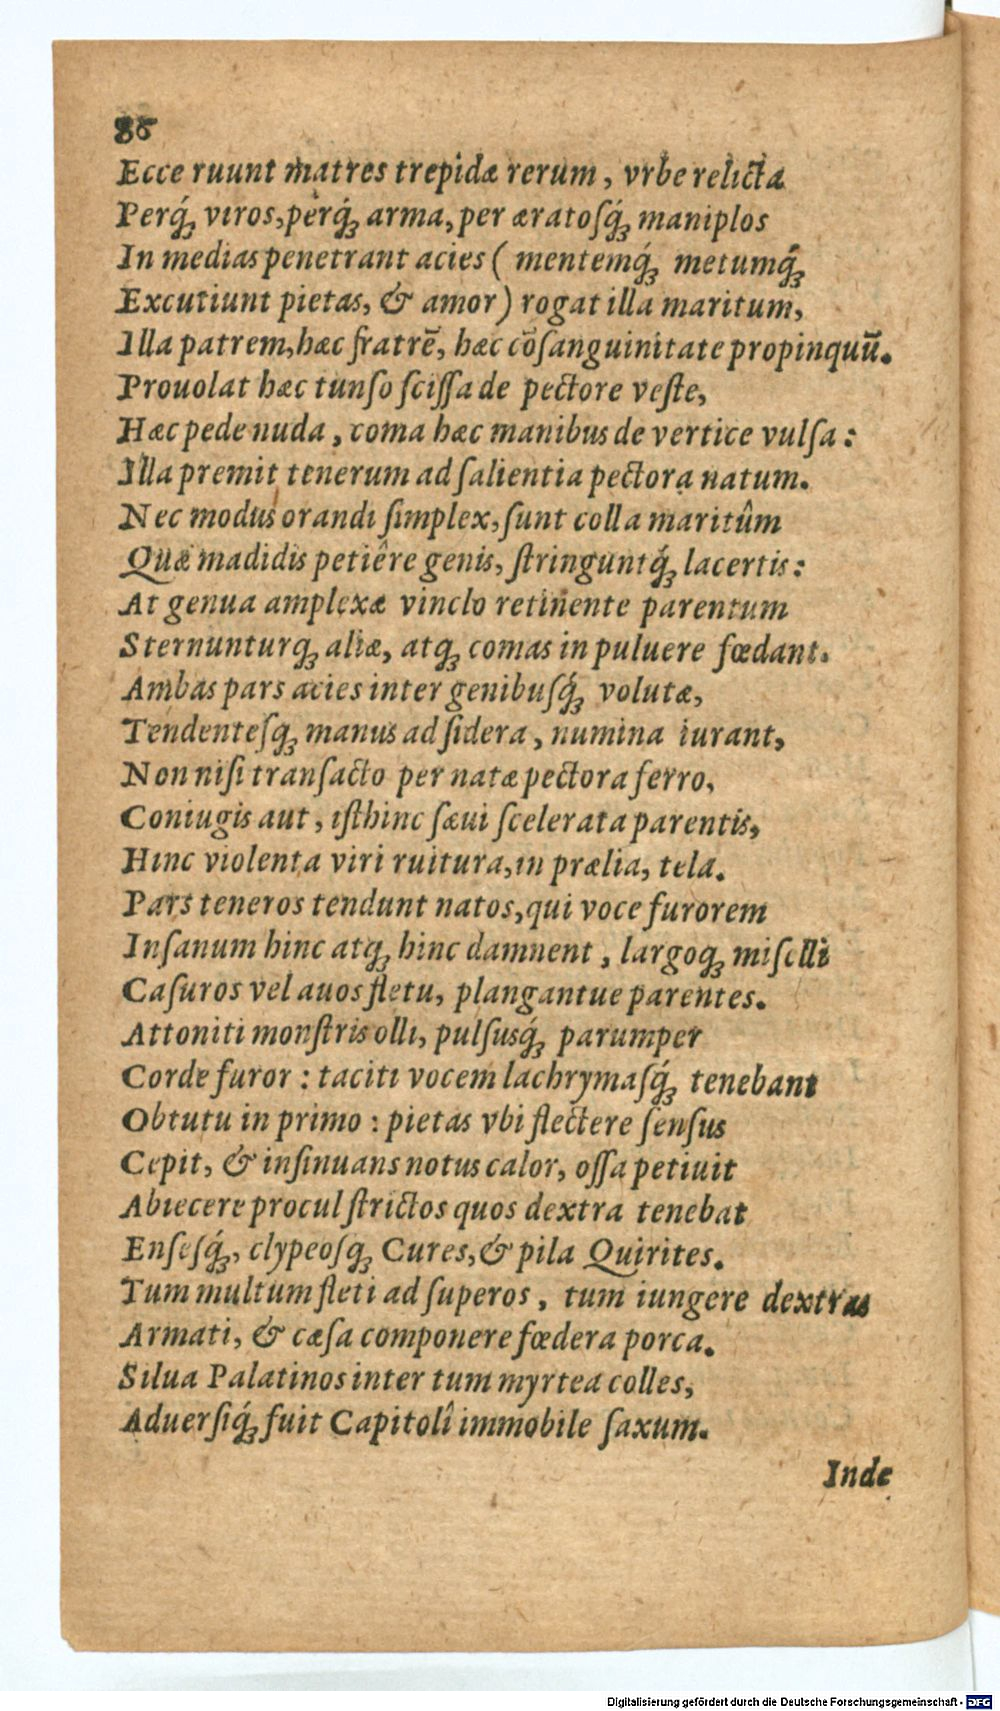 86
Ecce ruunt matres trepidæ rerum, vrbe relicta
Perq́ꝫ viros, perq́ꝫ arma, per æratosq́ꝫ maniplos
In medias penetrant acies ( mentemq́ꝫ metumq́ꝫ
Excutiunt pietas, & amor) rogat illa maritum,
Illa patrem, hæc fratrē, hæc cōsanguinitate propinquū.
Prouolat hæc tunso scissa de pectore veste,
Hæc pede nuda, coma hæc manibus de vertice vulsa:
Illa premit tenerum ad salientia pectora natum.
Nec modus orandi simplex, sunt colla maritûm
Quæ madidis petiêre genis, stringuntq́ꝫ lacertis:
At genua amplexæ vinclo retinente parentum
Sternunturqꝫ aliæ, atqꝫ comas in puluere fœdant.
Ambas pars acies inter genibusq́ꝫ volutæ,
Tendentesqꝫ manus ad sidera, numina iurant,
Non nisi transacto per natæ pectora ferro,
Coniugis aut, isthinc sæui scelerata parentis,
Hinc violenta viri ruitura, in prælia, tela.
Pars teneros tendunt natos, qui voce furorem
Insanum hinc atqꝫ hinc damnent, largoqꝫ miselli
Casuros vel auos fletu, plangantue parentes.
Attoniti monstris olli, pulsusq́ꝫ parumper
Corde furor : taciti vocem lachrymasq́ꝫ tenebant
Obtutu in primo : pietas vbi flectere sensus
Cepit, & insinuans notus calor, ossa petiuit
Abiecere procul strictos quos dextra tenebat
Ensesq́ꝫ, clypeosqꝫ Cures, & pila Quirites.
Tum multum fleti ad superos, tum iungere dextras
Armati, & cæsa componere fœdera porca.
Silua Palatinos inter tum myrtea colles,
Aduersiq́ꝫ fuit Capitolî immobile saxum.
Inde
Digitalisierung gefördert durch die Deutsche Forschungsgemeinschaft - DFG